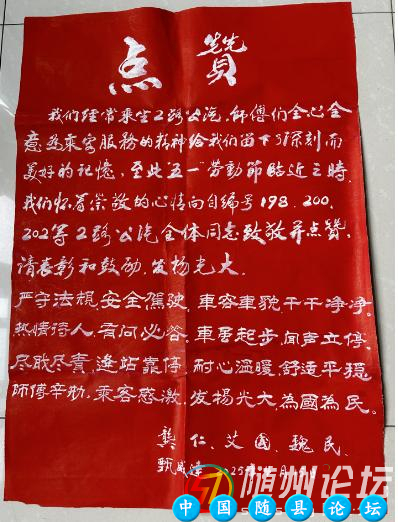 点赞
我们经常乘坐2路公汽,师傅们全心全
意为乘客服务的精神给我们留下了深刻而
美好的记忆,至此"五一"劳動節临近之時,
我们怀着崇敬的心情向自编号198、200、
202等2路公汽全体同志致敬并点赞,
请表彰和鼓励,发杨光大。
严守法規,安全駕駛,車容車貌干干净净。
热情待人,有问必答。車居起步,闻声立停。
尽职尽责,進站靠停,耐心溫暖,舒适平穩
師傅辛勤,乘客感激,发揚光大,為國為民。
龔仁、艾國、魏民、
甄威達
随州论坛
中国随县论坛